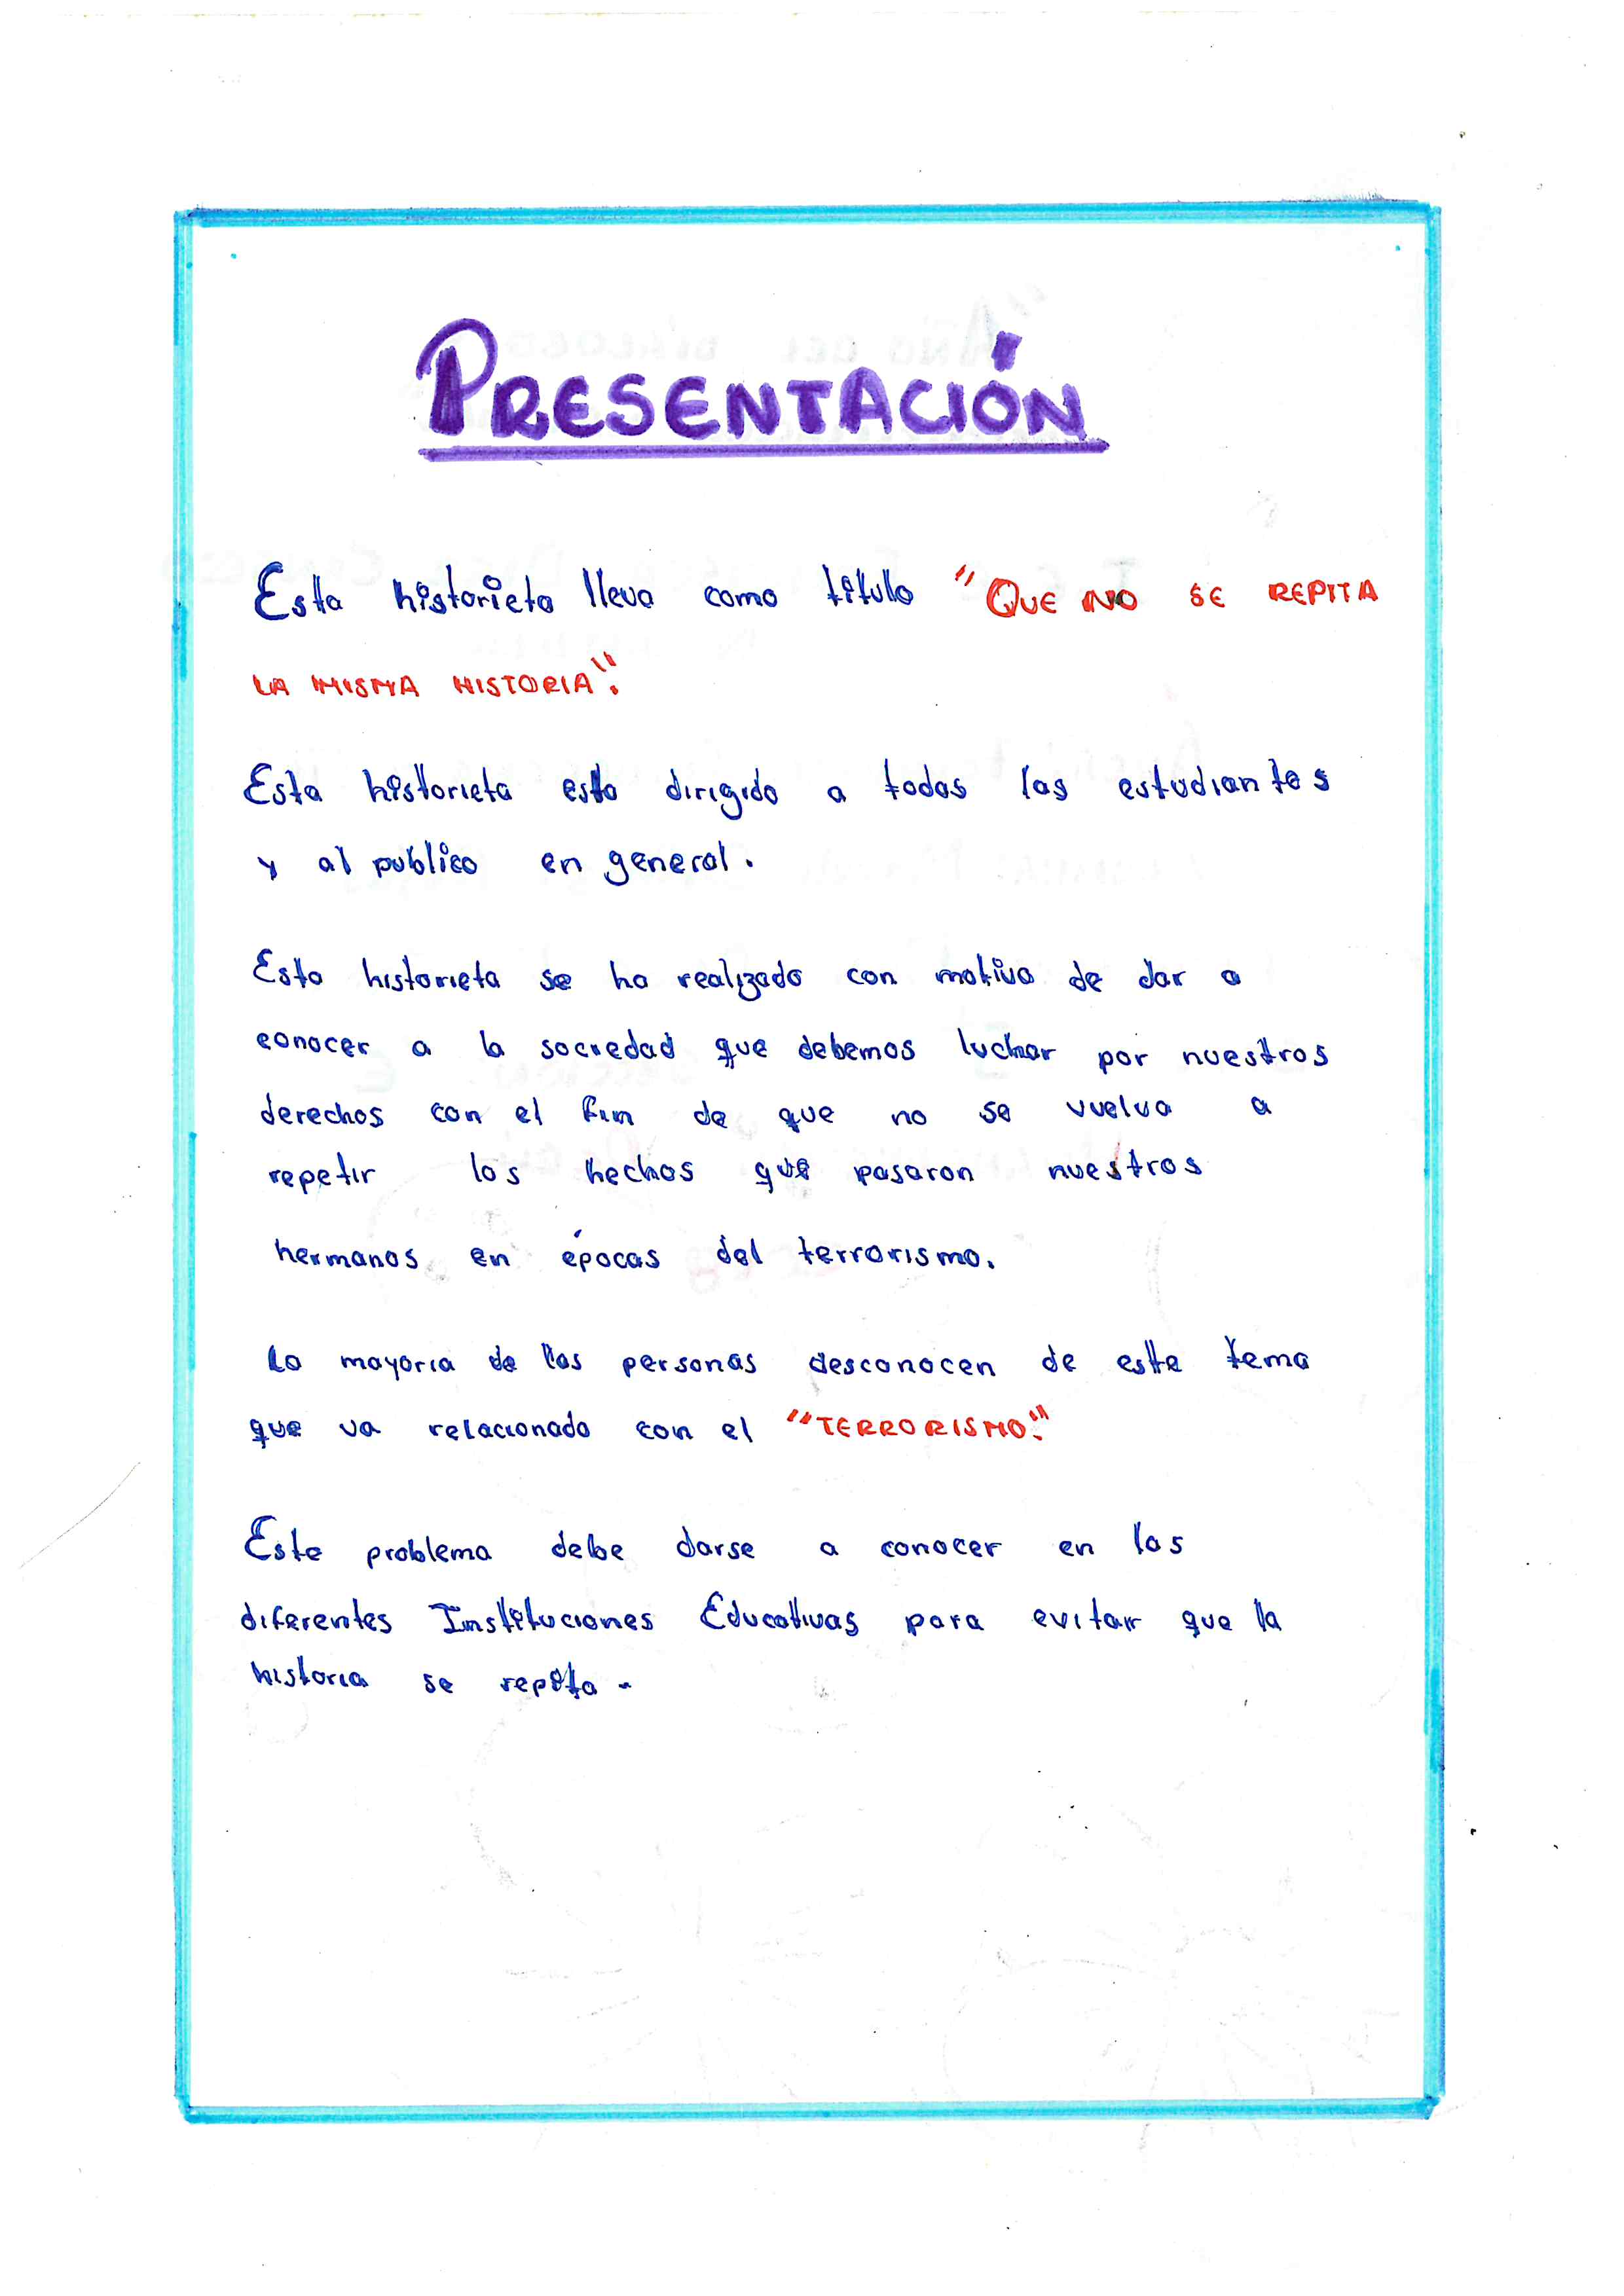 PRESENTACIÓN
Esta historieta lleva como titulo "QUE NO SE REPITA
LA MISMA HISTORIA".
Esta historieta esta dirigido a todas las estudiantes
y al publico en general.
Esta historieta se ha realizado con motivo de dar a
conocer a la sociedad que debemos luchar por nuestros
derechos con el fin de que no se vuelva a
repetir los hechos que pasaron nuestros
hermanos en épocas del terrorismo.
La mayoria de las personas desconocen de este tema
que va relacionado con el "TERRORISMO."
Este problema debe darse a conocer en las
diferentes Instituciones Educativas para evitar que la
historia se repita.